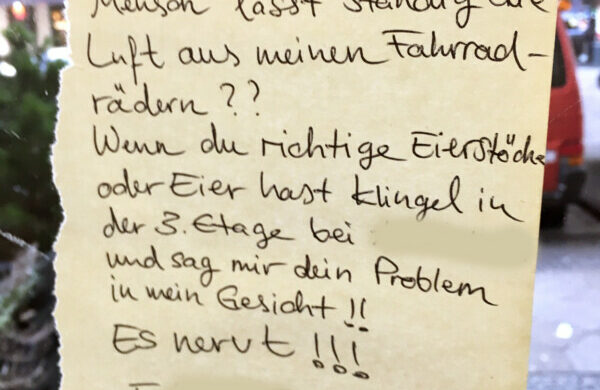 Mensch lässt ständig die
Luft aus meinen Fahrrad-
rädern ??
Wenn du richtige Eierstöcke
oder Eier hast klingel in
der 3. Etage bei
und sag mir dein Problem
in mein Gesicht !!
Es nervt !!!